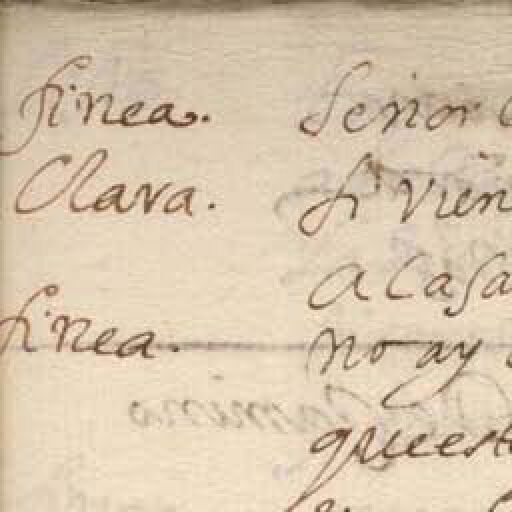 finea. Señor
Clara. si vien
a casa
finea. no ay
que est